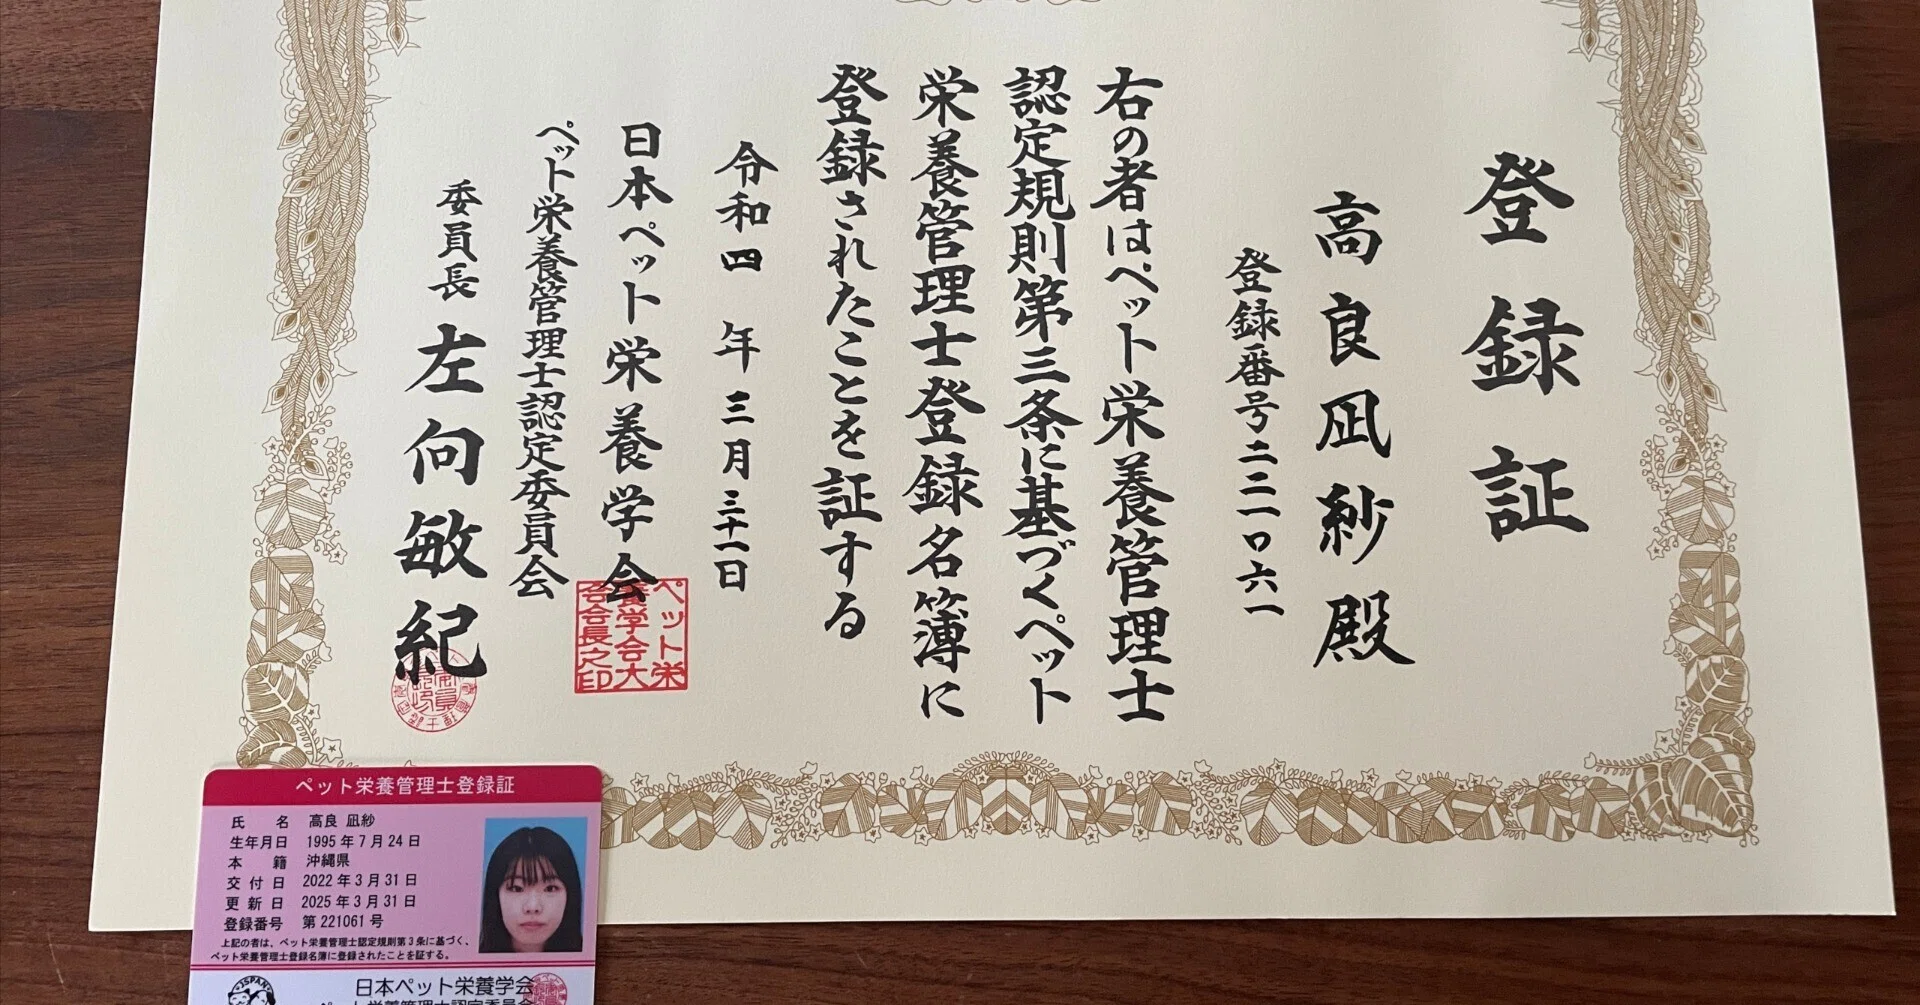 登録証
高良凪紗殿
登録番号二二一〇六一
右の者はペット栄養管理士
認定規則第三条に基づくペット
栄養管理士登録名簿に
登録されたことを証する
令和四年三月三十一日
日本ペット栄養学会
ペット栄養管理士認定委員会
委員長 左向敏紀
ペット栄養管理士登録証
氏名 高良 凪紗
生年月日 1995年7月24日
本籍 沖縄県
交付日 2022年3月31日
更新日 2025年3月31日
登録番号 第221061号
上記の者は、ペット栄養管理士認定規則第3条に基づく、
ペット栄養管理士登録名簿に登録されたことを証する。
日本ペット栄養学会
ペット栄養管理士認定委員会